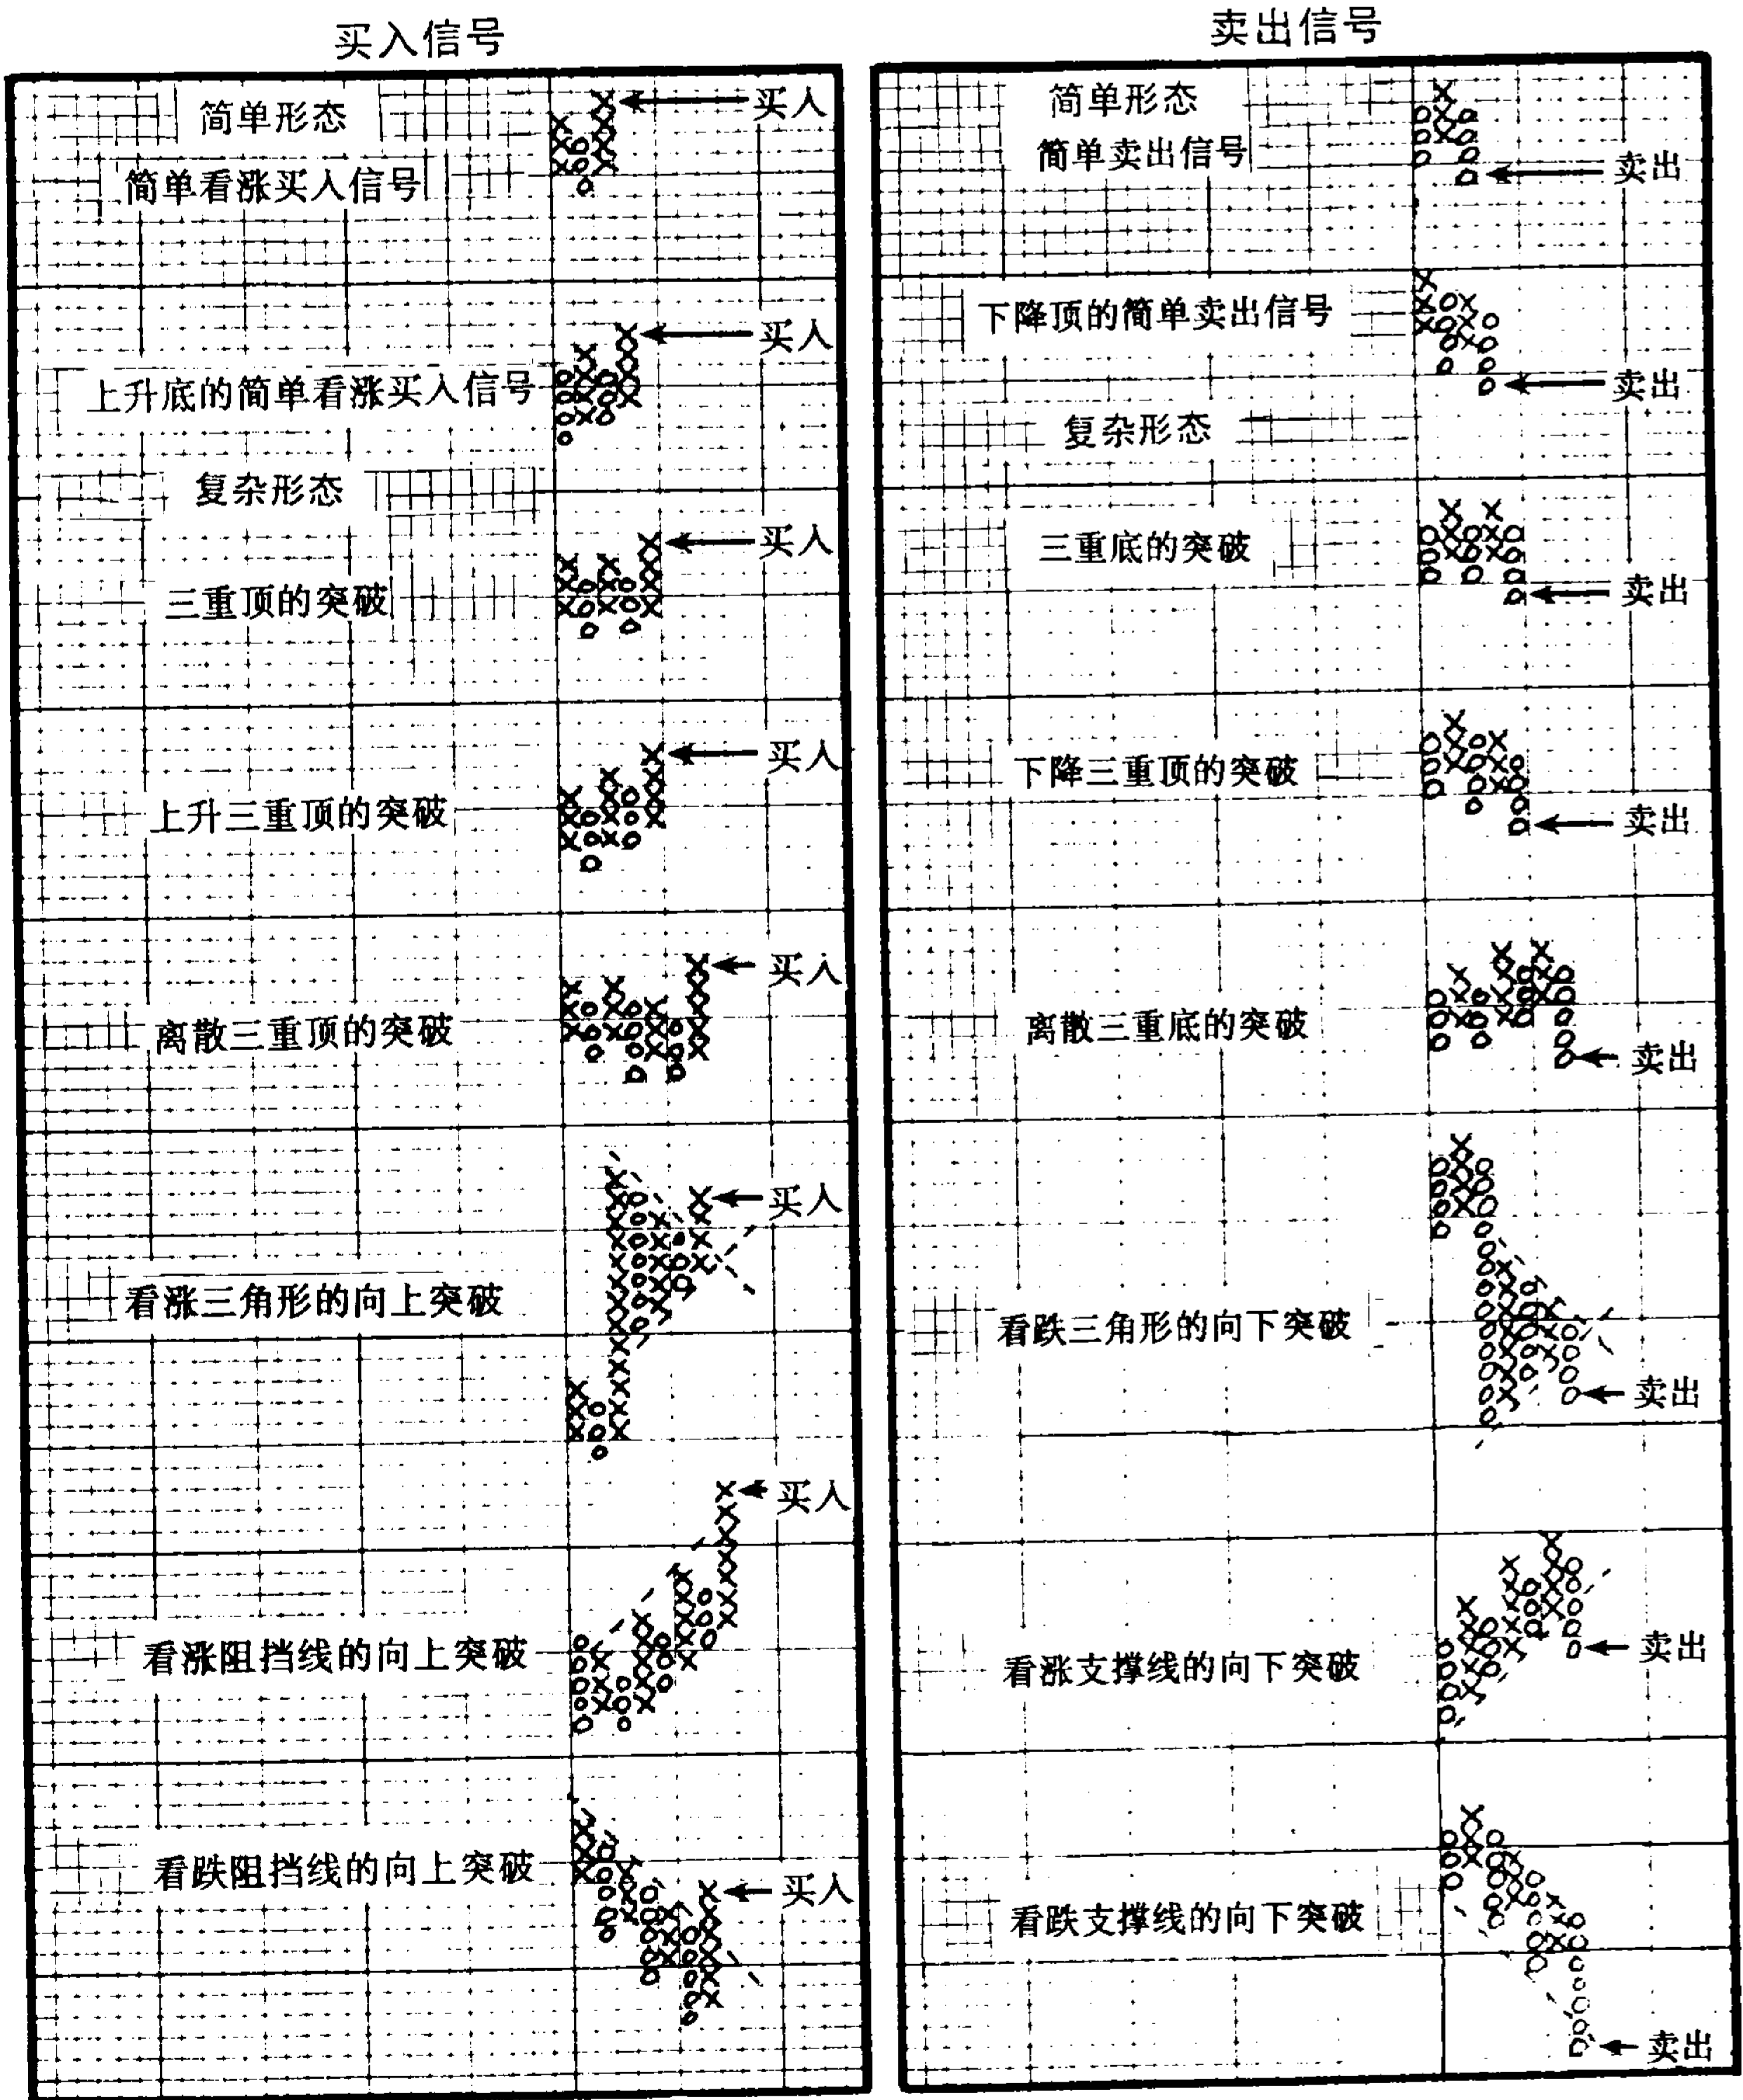 买入信号
简单形态
买入
简单看涨买入信号
买入
上升底的简单看涨买入信号
复杂形态
买入
三重顶的突破
买入
上升三重顶的突破
买入
离散三重顶的突破
买入
看涨三角形的向上突破
买入
看涨阻挡线的向上突破
看跌阻挡线的向上突破
买入
卖出信号
简单形态
简单卖出信号
卖出
下降顶的简单卖出信号
卖出
复杂形态
三重底的突破
卖出
下降三重顶的突破
卖出
离散三重底的突破
卖出
看跌三角形的向下突破
卖出
看涨支撑线的向下突破
卖出
看跌支撑线的向下突破
卖出